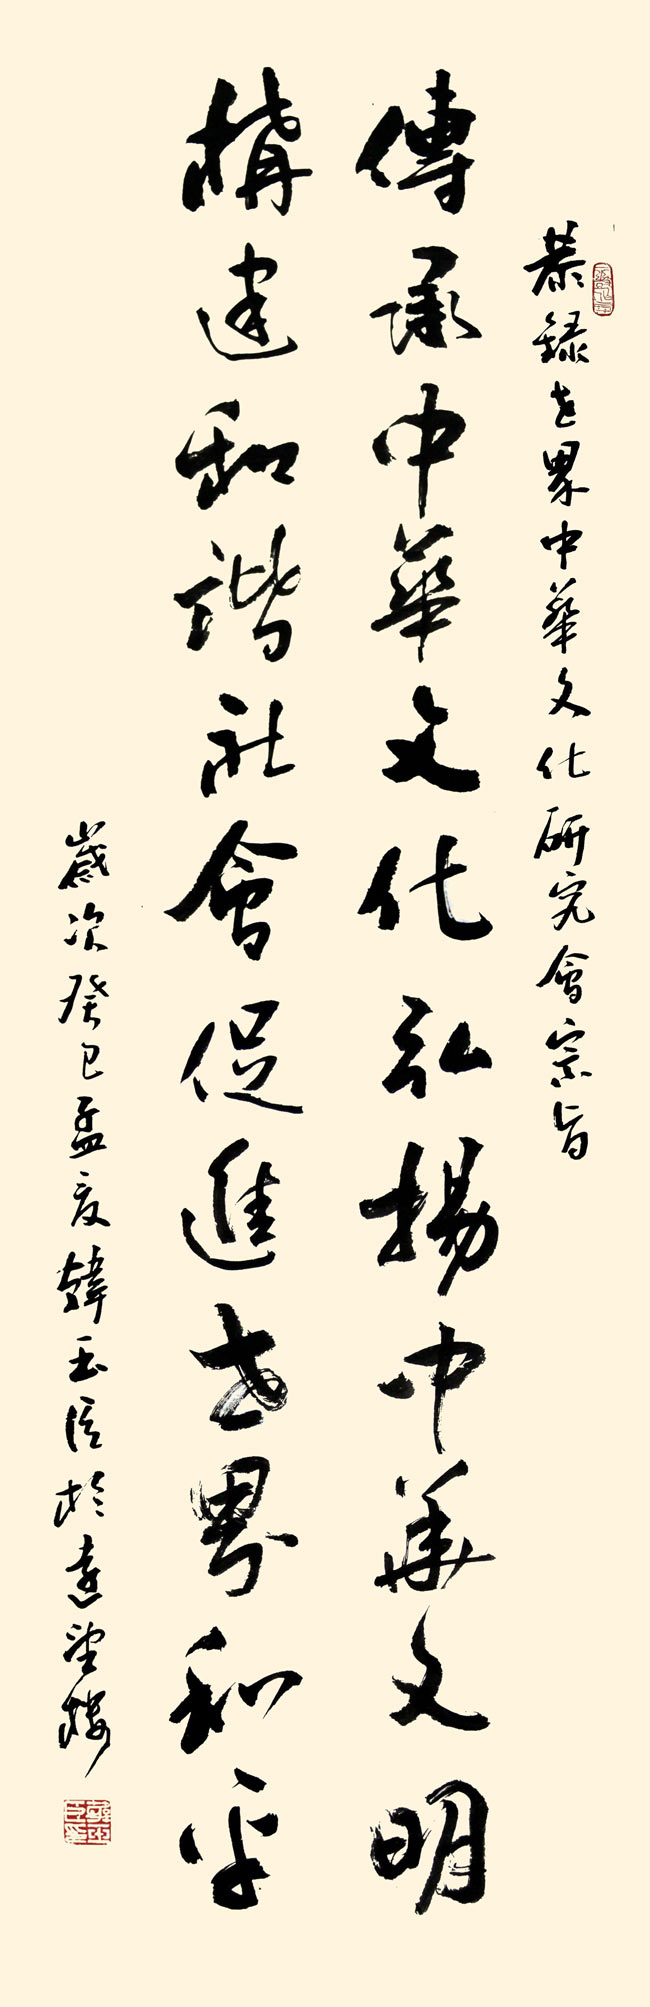 恭録世界中華文化研究會宗旨
傳承中華文化弘揚中華文明
構建和諧社會促進世界和平
歲次癸巳孟夏韓玉臣於遠望樓